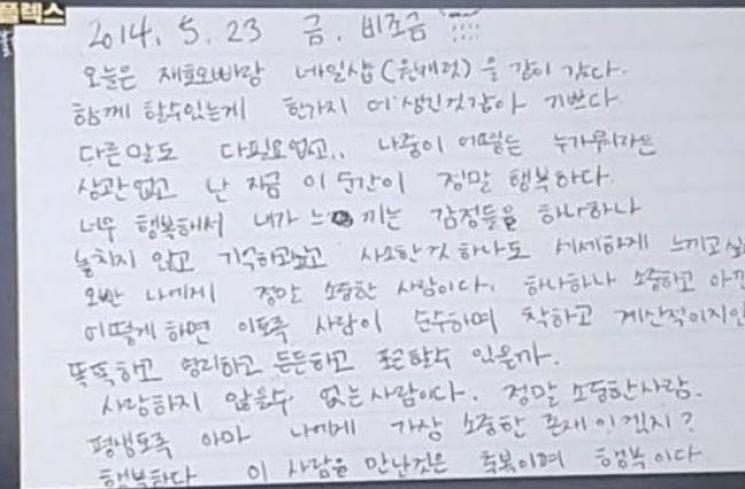 플렉스
2014. 5. 23 금. 비조금
오늘은 재호오빠랑 네일샵(원캐럿)을 같이 갔다.
함께 할수있는게 한가지 더 생긴것같아 기쁘다
다른말도 다필요없고.. 나중이 어떻든 누가뭐라든
상관없고 난 지금 이 순간이 정말 행복하다.
너무 행복해서 내가 느끼는 감정들을 하나하나
놓치지 않고 기억하고싶고 사소한것 하나도 세세하게 느끼고
오빤 나에게 정말 소중한 사람이다. 하나하나 소중하고
어떻게 하면 이토록 사람이 순수하며 착하고
똑똑하고 영리하고 든든하고 포근할수 있을까.
사랑하지 않을수 없는 사람이다. 정말 소중한사람.
평생토록 아마 나에게 가장 소중한 존재이겠지?
행복하다 이 사람을 만난것은 축복이며 행복이다